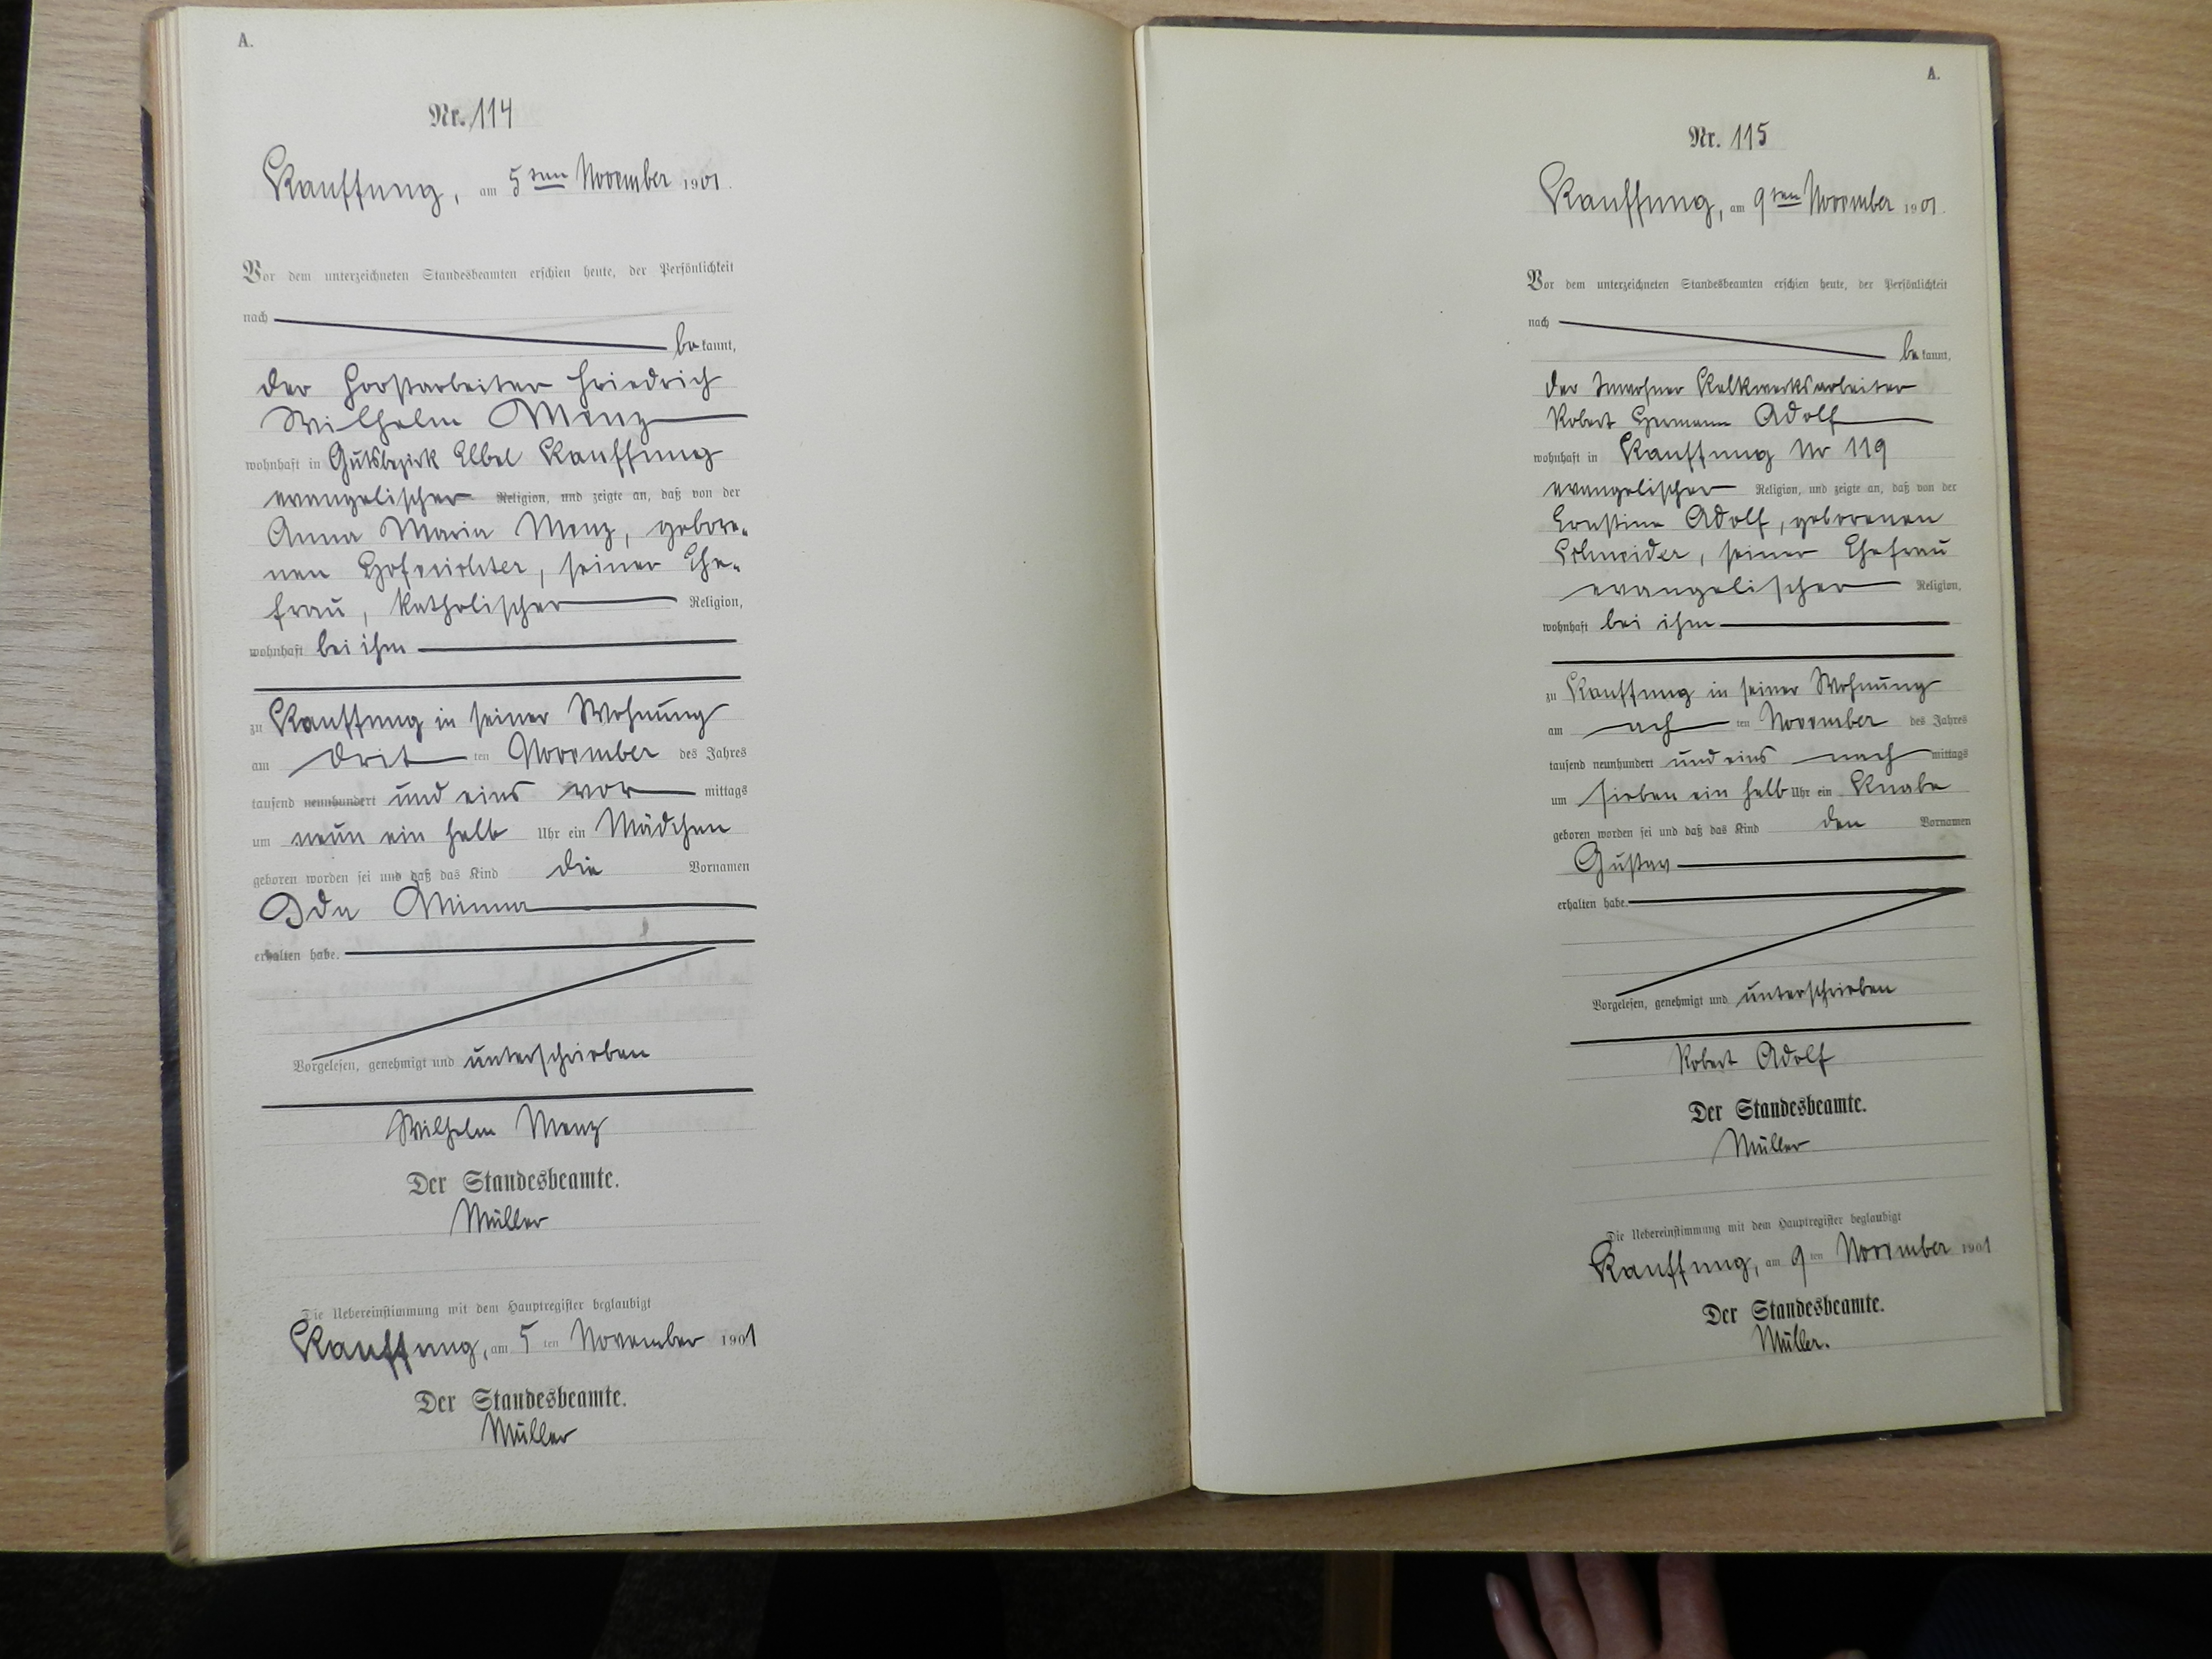 A.
Nr. 114
Kauffung, am 5ten November 1901.
Vor dem unterzeichneten Standesbeamten erschien heute, der Persönlichkeit
nach
bekannt,
der Forstarbeiter Friedrich
Wilhelm Menz
wohnhaft in Gutsbezirk Elbel Kauffung
evangelischer Religion, und zeigte an, daß von der
Anna Maria Menz, gebore-
nen Hofrichter, seiner Ehe-
frau, katholischer Religion,
wohnhaft bei ihm
zu Kauffung in seiner Wohnung
am dritten November des Jahres
tausend neunhundert und eins vormittags
um neun ein halb Uhr ein Mädchen
geboren worden sei und daß das Kind die Vornamen
Ida Minna
erhalten habe.
Vorgelesen, genehmigt und unterschrieben
Wilhelm Menz
Der Standesbeamte.
Müller
Die Uebereinstimmung mit dem Hauptregister beglaubigt
Kauffung, am 5ten November 1901
Der Standesbeamte.
Müller
A.
Nr. 115
Kauffung, am 9ten November 1901.
Vor dem unterzeichneten Standesbeamten erschien heute, der Persönlichkeit
nach
bekannt,
der Inwohner Kalkwerksarbeiter
Robert Hermann Adolf
wohnhaft in Kauffung Nr 119
evangelischer Religion, und zeigte an, daß von der
Ernstine Adolf, geborenen
Schneider, seiner Ehefrau
evangelischer Religion,
wohnhaft bei ihm
zu Kauffung in seiner Wohnung
am achten November des Jahres
tausend neunhundert und eins nachmittags
um sieben ein halb Uhr ein Knabe
geboren worden sei und daß das Kind den Vornamen
Gustav
erhalten habe.
Vorgelesen, genehmigt und unterschrieben
Robert Adolf
Der Standesbeamte.
Müller
Die Uebereinstimmung mit dem Hauptregister beglaubigt
Kauffung, am 9ten November 1901
Der Standesbeamte.
Müller.